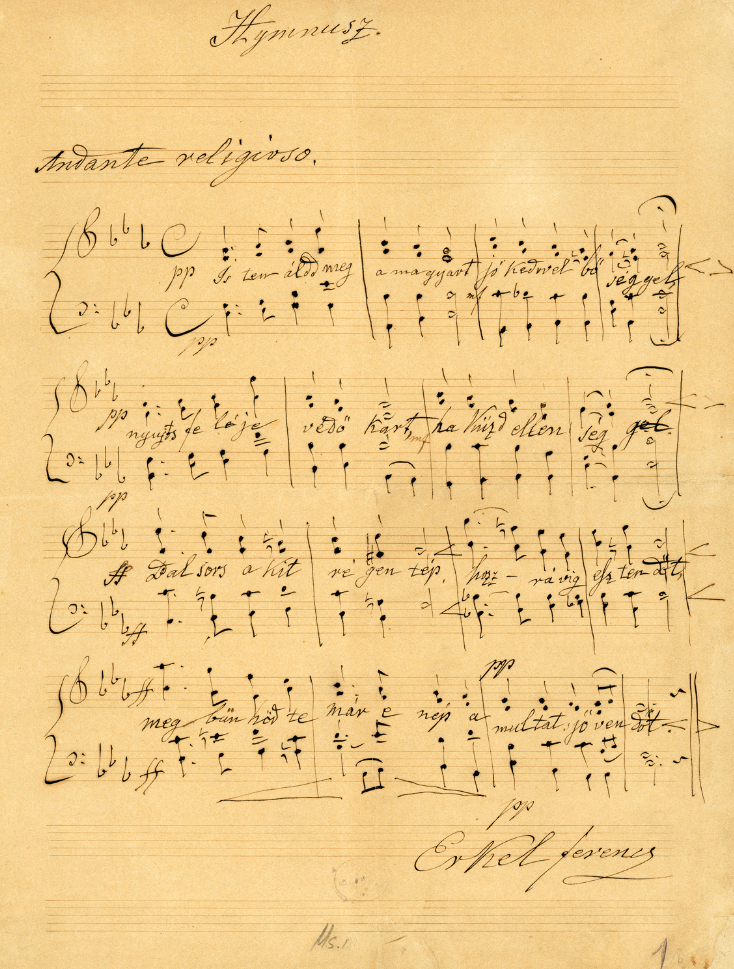 Hymnusz.
Andante religioso.
pp Is ten áldd meg a magyart jó kedvvel bő ség gel,
mf
pp
pp nyujts fe lé je védő kart, ha küzd ellen ség gel.
mf
pp
ff Bal sors a kit ré gen tép, hoz - rá víg esz ten dőt,
ff
pp
ff meg bün höd te már e nép a multat, jö ven dőt
ff
pp
Erkel ferencz
Ms.
1